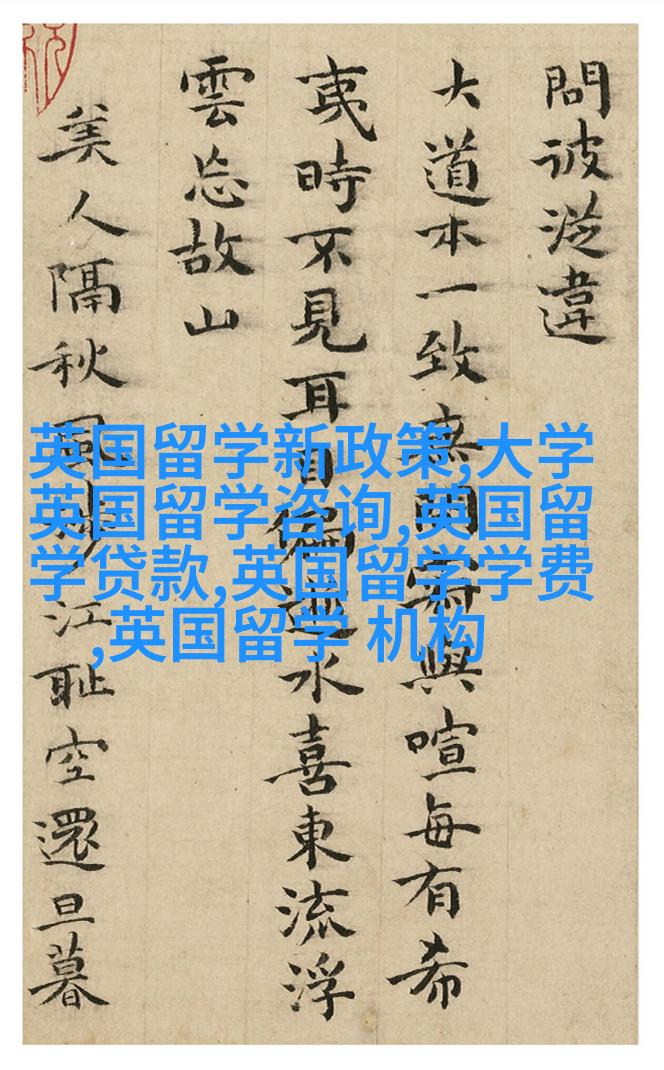 問違
大道本一致無間與喧每有希
夷時不見耳目水喜東流浮
雲忘故山
美人隔秋風江耻空還旦暮
英国留学新政策,大学
英国留学咨询,英国留
学贷款,英国留学学费
,英国留学 机构